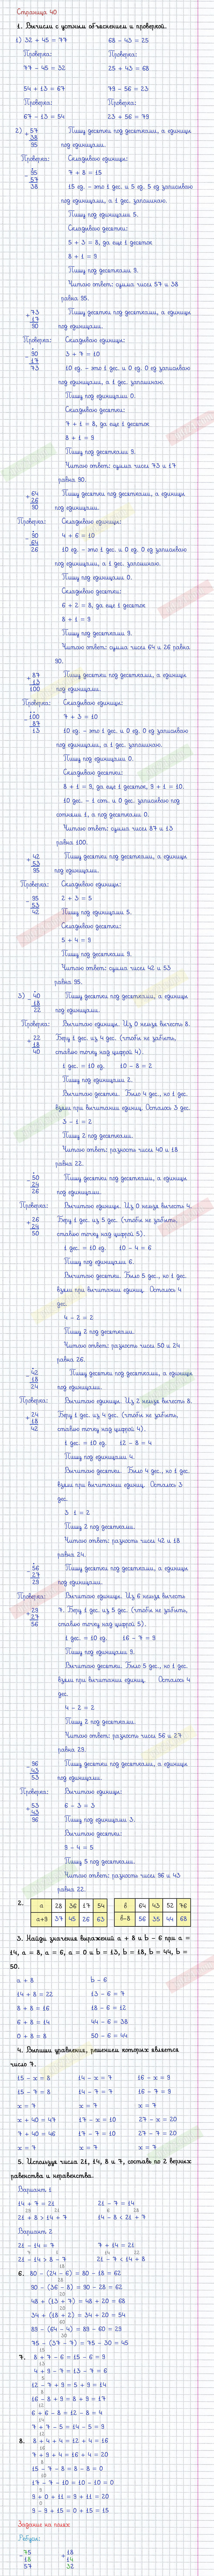 Страница 40
1. Вычисли с устным объяснением и проверкой.
1) 32 + 45 = 77 68 - 43 = 25
Проверка: Проверка:
77 - 45 = 32 25 + 43 = 68
54 + 13 = 67 79 - 56 = 23
Проверка: Проверка:
67 - 13 = 54 23 + 56 = 79
2) + 57 Пишу десятки под десятками, а единицы
38
95 под единицами.
Проверка: Складываю единицы:
- 95 7 + 8 = 15
57
38 15 ед. - это 1 дес. и 5 ед. 5 ед записываю
под единицами, а 1 дес. запоминаю.
Пишу под единицами 5.
Складываю десятки:
5 + 3 = 8, да еще 1 десяток
8 + 1 = 9
Пишу под десятками 9.
Читаю ответ: сумма чисел 57 и 38
равна 95.
+ 73 Пишу десятки под десятками, а единицы
17
90 под единицами.
Проверка: Складываю единицы:
- 90 3 + 7 = 10
17
73 10 ед. - это 1 дес. и 0 ед. 0 ед записываю
под единицами, а 1 дес. запоминаю.
Пишу под единицами 0.
Складываю десятки:
7 + 1 = 8, да еще 1 десяток
8 + 1 = 9
Пишу под десятками 9.
Читаю ответ: сумма чисел 73 и 17
равна 90.
+ 64 Пишу десятки под десятками, а единицы
26
90 под единицами.
Проверка: Складываю единицы:
- 90 4 + 6 = 10
64
26 10 ед. - это 1 дес. и 0 ед. 0 ед записываю
под единицами, а 1 дес. запоминаю.
Пишу под единицами 0.
Складываю десятки:
6 + 2 = 8, да еще 1 десяток
8 + 1 = 9
Пишу под десятками 9.
Читаю ответ: сумма чисел 64 и 26 равна
90.
+ 87 Пишу десятки под десятками, а единицы
13
100 под единицами.
Проверка: Складываю единицы:
- 100 7 + 3 = 10
87
13 10 ед. - это 1 дес. и 0 ед. 0 ед записываю
под единицами, а 1 дес. запоминаю.
Пишу под единицами 0.
Складываю десятки:
8 + 1 = 9, да еще 1 десяток, 9 + 1 = 10.
10 дес. - 1 сот. и 0 дес. записываю под
сотнями 1, а под десятками 0.
Читаю ответ: сумма чисел 87 и 13
равна 100.
+ 42 Пишу десятки под десятками, а единицы
53
95 под единицами.
Проверка: Складываю единицы:
- 95 2 + 3 = 5
53
42 Пишу под единицами 5.
Складываю десятки:
5 + 4 = 9
Пишу под десятками 9.
Читаю ответ: сумма чисел 42 и 53
равна 95.
3) - 40 Пишу десятки под десятками, а единицы
18
22 под единицами.
Проверка: Вычитаю единицы. Из 0 нельзя вычесть 8.
+ 22 Беру 1 дес. из 4 дес. (чтобы не забыть,
18
40 ставлю точку над цифрой 4).
1 дес. = 10 ед. 10 - 8 = 2
Пишу под единицами 2.
Вычитаю десятки. Было 4 дес., но 1 дес.
взяли при вычитании единиц. Осталось 3 дес.
3 - 1 = 2
Пишу 2 под десятками.
Читаю ответ: разность чисел 40 и 18
равна 22.
- 50 Пишу десятки под десятками, а единицы
24
26 под единицами.
Проверка: Вычитаю единицы. Из 0 нельзя вычесть 4.
+ 26 Беру 1 дес. из 5 дес. (чтобы не забыть,
24
50 ставлю точку над цифрой 5).
1 дес. = 10 ед. 10 - 4 = 6
Пишу под единицами 6.
Вычитаю десятки. Было 5 дес., но 1 дес.
взяли при вычитании единиц. Осталось 4
дес.
4 - 2 = 2
Пишу 2 под десятками.
Читаю ответ: разность чисел 50 и 24
равна 26.
- 42 Пишу десятки под десятками, а единицы
18
24 под единицами.
Проверка: Вычитаю единицы. Из 2 нельзя вычесть 8.
+ 24 Беру 1 дес. из 4 дес. (чтобы не забыть,
18
42 ставлю точку над цифрой 4).
1 дес. = 10 ед. 12 - 8 = 4
Пишу под единицами 4.
Вычитаю десятки. Было 4 дес., но 1 дес.
взяли при вычитании единиц. Осталось 3
дес.
3 1 = 2
Пишу 2 под десятками.
Читаю ответ: разность чисел 42 и 18
равна 24.
- 56 Пишу десятки под десятками, а единицы
27
29 под единицами.
Проверка: Вычитаю единицы. Из 6 нельзя вычесть
+ 29 7. Беру 1 дес. из 5 дес. (чтобы не забыть,
27
56 ставлю точку над цифрой 5).
1 дес. = 10 ед. 16 - 7 = 9
Пишу под единицами 9.
Вычитаю десятки. Было 5 дес., но 1 дес.
взяли при вычитании единиц. Осталось 4
дес.
4 - 2 = 2
Пишу 2 под десятками.
Читаю ответ: разность чисел 56 и 27
равна 29.
- 96 Пишу десятки под десятками, а единицы
43
53 под единицами.
Проверка: Вычитаю единицы:
+ 53 6 - 3 = 3
43
96 Пишу под единицами 3.
Вычитаю десятки:
9 - 4 = 5
Пишу 5 под десятками.
Читаю ответ: разность чисел 96 и 43
равна 22.
2. а 28 36 17 54 в 64 43 52 76
а+9 37 45 26 63 в-8 56 35 44 68
3. Найди значения выражений a + 8 и b - 6 при a =
14, a = 8, a = 6, a = 0 и b = 13, b = 18, b = 44, b =
50.
a + 8 b - 6
14 + 8 = 22 13 - 6 = 7
8 + 8 = 16 18 - 6 = 12
6 + 8 = 14 44 - 6 = 38
0 + 8 = 8 50 - 6 = 44
4. Выпиши уравнения, решением которых является
число 7.
15 - x = 8 14 - x = 7 16 - x = 9
15 - 7 = 8 14 - 7 = 7 16 - 7 = 9
x = 7 x = 7 x = 7
x + 40 = 47 17 - x = 10 27 - x = 20
7 + 40 = 46 17 - 7 = 10 27 - 7 = 20
x = 7 x = 7 x = 7
5. Используя числа 21, 14, 8 и 7, составь по 2 верных
равенства и неравенства.
Вариант 1
14 + 7 = 21 21 - 7 = 14
21 + 8 > 14 + 7 14 - 8 < 21 + 7
Вариант 2
21 - 14 = 7 7 + 14 = 21
21 - 14 > 8 - 7 21 - 7 < 14 + 8
6. 80 - (24 - 6) = 80 - 18 = 62
90 - (36 - 8) = 90 - 28 = 62
48 + (13 + 7) = 48 + 20 = 68
34 + (18 + 2) = 34 + 20 = 54
89 - (64 - 4) = 89 - 60 = 29
75 - (37 - 7) = 75 - 30 = 45
7. 8 + 7 - 6 = 15 - 6 = 9
4 + 9 - 7 = 13 - 7 = 6
12 - 7 + 9 = 5 + 9 = 14
16 - 8 + 9 = 8 + 9 = 17
6 + 6 - 8 = 12 - 8 = 4
7 + 7 - 5 = 14 - 5 = 9
8. 8 + 4 + 4 = 12 + 4 = 16
7 + 9 + 4 = 16 + 4 = 20
15 - 7 - 8 = 8 - 8 = 0
17 - 7 - 10 = 10 - 10 = 0
9 + 0 + 11 = 9 + 11 = 20
9 - 9 + 15 = 0 + 15 = 15
Задание на полях
Ребусы:
- 75 + 18
18 14
57 32